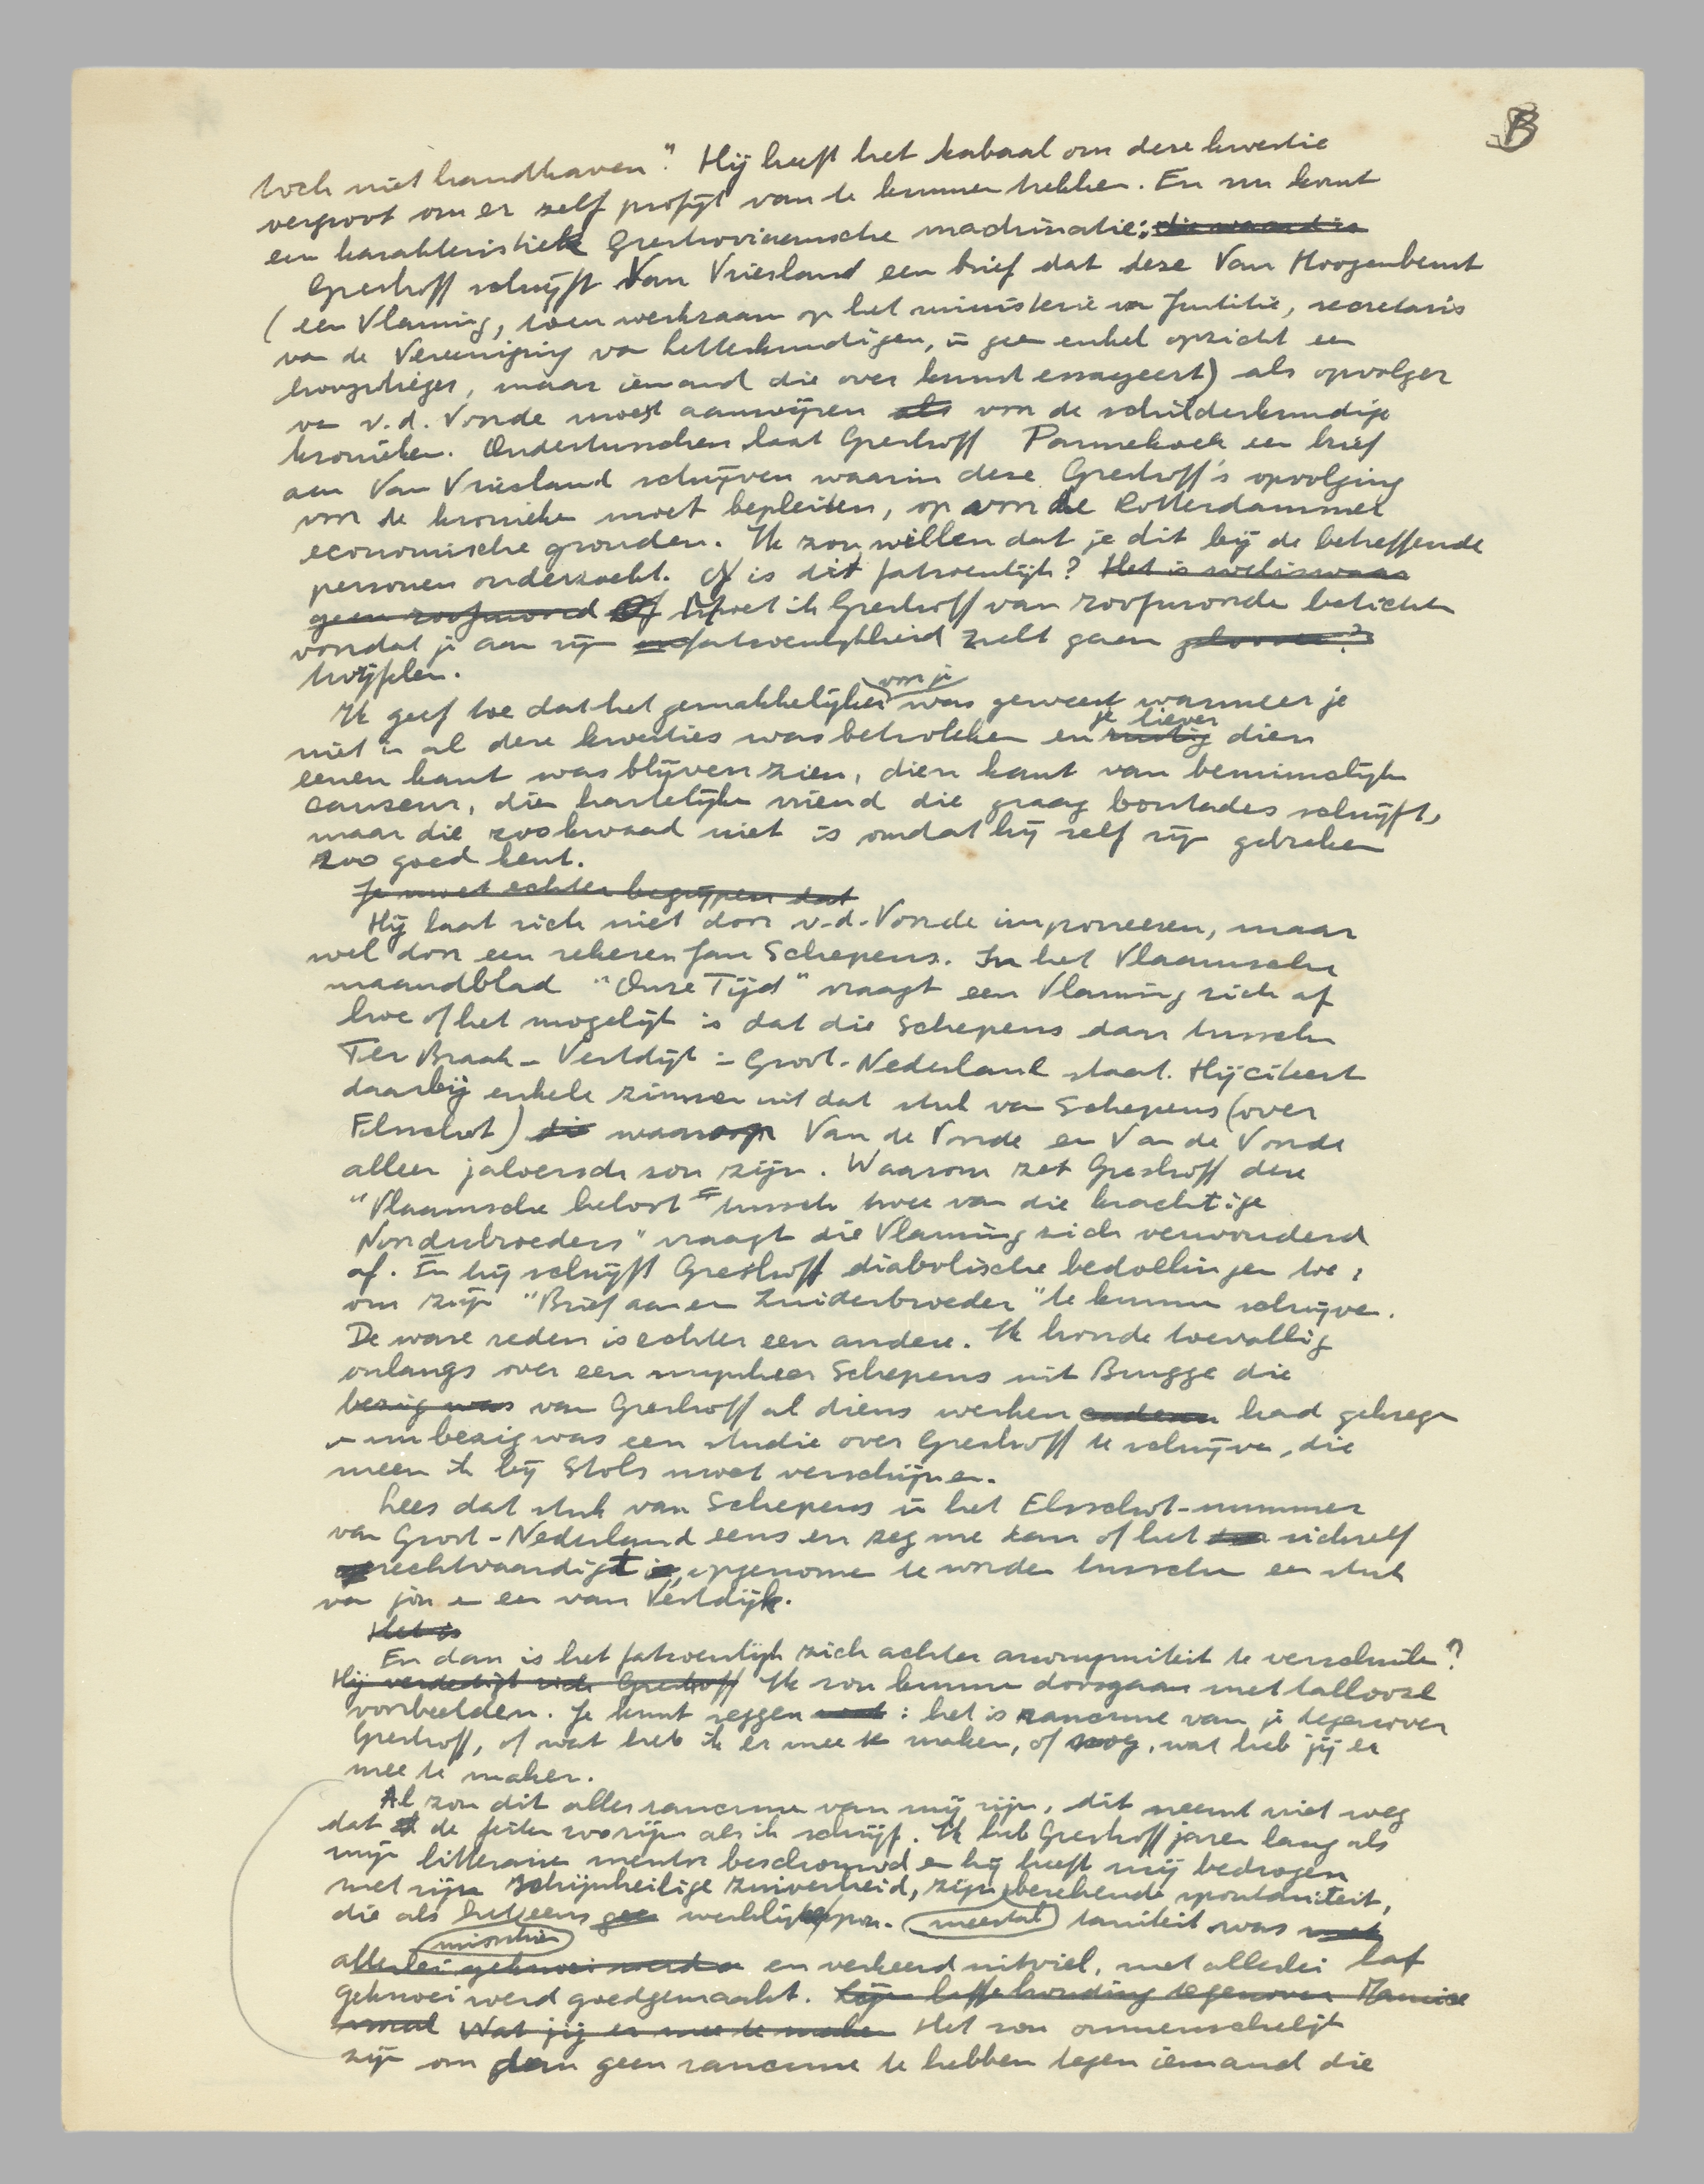 B
toch niet handhaven". Hij heeft het kabaal om deze kwestie
vergroot om er zelf profijt van te kunnen trekken. En nu komt
een karakteristiek Greshoviaansche machinatie:
Greshoff schrijft Van Vriesland een brief dat deze Van Hoogenbemt
(een Vlaming, toen werkzaam op het ministerie van Justitie, secretaris
van de Vereeniging van Letterkundigen, in geen enkel opzicht een
hoogvlieger, maar iemand die over kunst essayeert) als opvolger
van v.d. Voorde moest aanwijzen als voor de schilderkundige
kronieken. Ondertusschen laat Greshoff Pannekoek een brief
aan Van Vriesland schrijven waarin deze Greshoff's opvolging
voor de kronieken moet bepleiten, op voor de Rotterdammer
economische gronden. Ik zou willen dat je dit bij de betreffende
personen onderzoekt. Of is dit fatsoenlijk? Het is weliswaar
geen roofmoord Of Moet ik Greshoff van roofmoorden betichten
voordat je aan zijn fatsoenlijkheid zult gaan
twijfelen.
Ik geef toe dat het gemakkelijker voor je was geweest wanneer je
niet in al deze kwesties was betrokken en je liever rustig dien
eenen kant was blijven zien, dien kant van beminnelijke
causeur, die hartelijke vriend die graag boutades schrijft,
maar die zoo kwaad niet is omdat hij zelf zijn gebreken
zoo goed kent.
Je moet echter begrijpen dat
Hij laat zich niet door v.d. Voorde imponeeren, maar
wel door een zekeren Jan Schepens. In het Vlaamsche
maandblad "Onze Tijd" vraagt een Vlaming zich af
hoe of het mogelijk is dat die Schepens daar tusschen
Ter Braak - Vestdijk in Groot-Nederland staat. Hij citeert
daarbij enkele zinnen uit dat stuk van Schepens (over
Elsschot) die waarop Van de Voorde en Van de Voorde
alleen jaloersch zou zijn. Waarom zet Greshoff deze
"Vlaamsche heloot" tusschen twee van die krachtige
Noorderbroeders" vraagt die Vlaming zich verwonderd
af. En hij schrijft Greshoff diabolische bedoelingen toe:
om zijn "Brief aan een Zuiderbroeder" te kunnen schrijven.
De ware reden is echter een andere. Ik hoorde toevallig
onlangs over een mijnheer Schepens uit Brugge die
bezig was van Greshoff al diens werken had gekregen
en nu bezig was een studie over Greshoff te schrijven, die
meen ik bij Stols moet verschijnen.
Lees dat stuk van Schepens in het Elsschot-nummer
van Groot-Nederland eens en zeg me dan of het zichzelf
rechtvaardigt opgenomen te worden tusschen een stuk
van jou en een van Vestdijk.
Het is
En dan is het fatsoenlijk zich achter anonymiteit te verschuilen?
Hij verdedigt zich Greshoff Ik zou kunnen doorgaan met tallooze
voorbeelden. Je kunt zeggen : het is rancune van je tegenover
Greshoff, of wat heb ik er mee te maken, of nog, wat heb jij er
mee te maken.
Al zou dit alles rancune van mij zijn, dit neemt niet weg
dat de feiten zoo zijn als ik schrijf. Ik heb Greshoff jaren lang als
mijn litteraire mentor beschouwd en hij heeft mij bedrogen
met zijn schijnheilige zuiverheid, zijn berekende spontaniteit,
die als het eens werkelijk spon- meestal taniteit was
misschien
allerlei geknoei werd en verkeerd uitviel, met allerlei laf
geknoei werd goedgemaakt. Zijn laffe houding tegenover
Wat jij er mee te maken Het zou onmenschelijk
zijn om dan geen rancune te hebben tegen iemand die